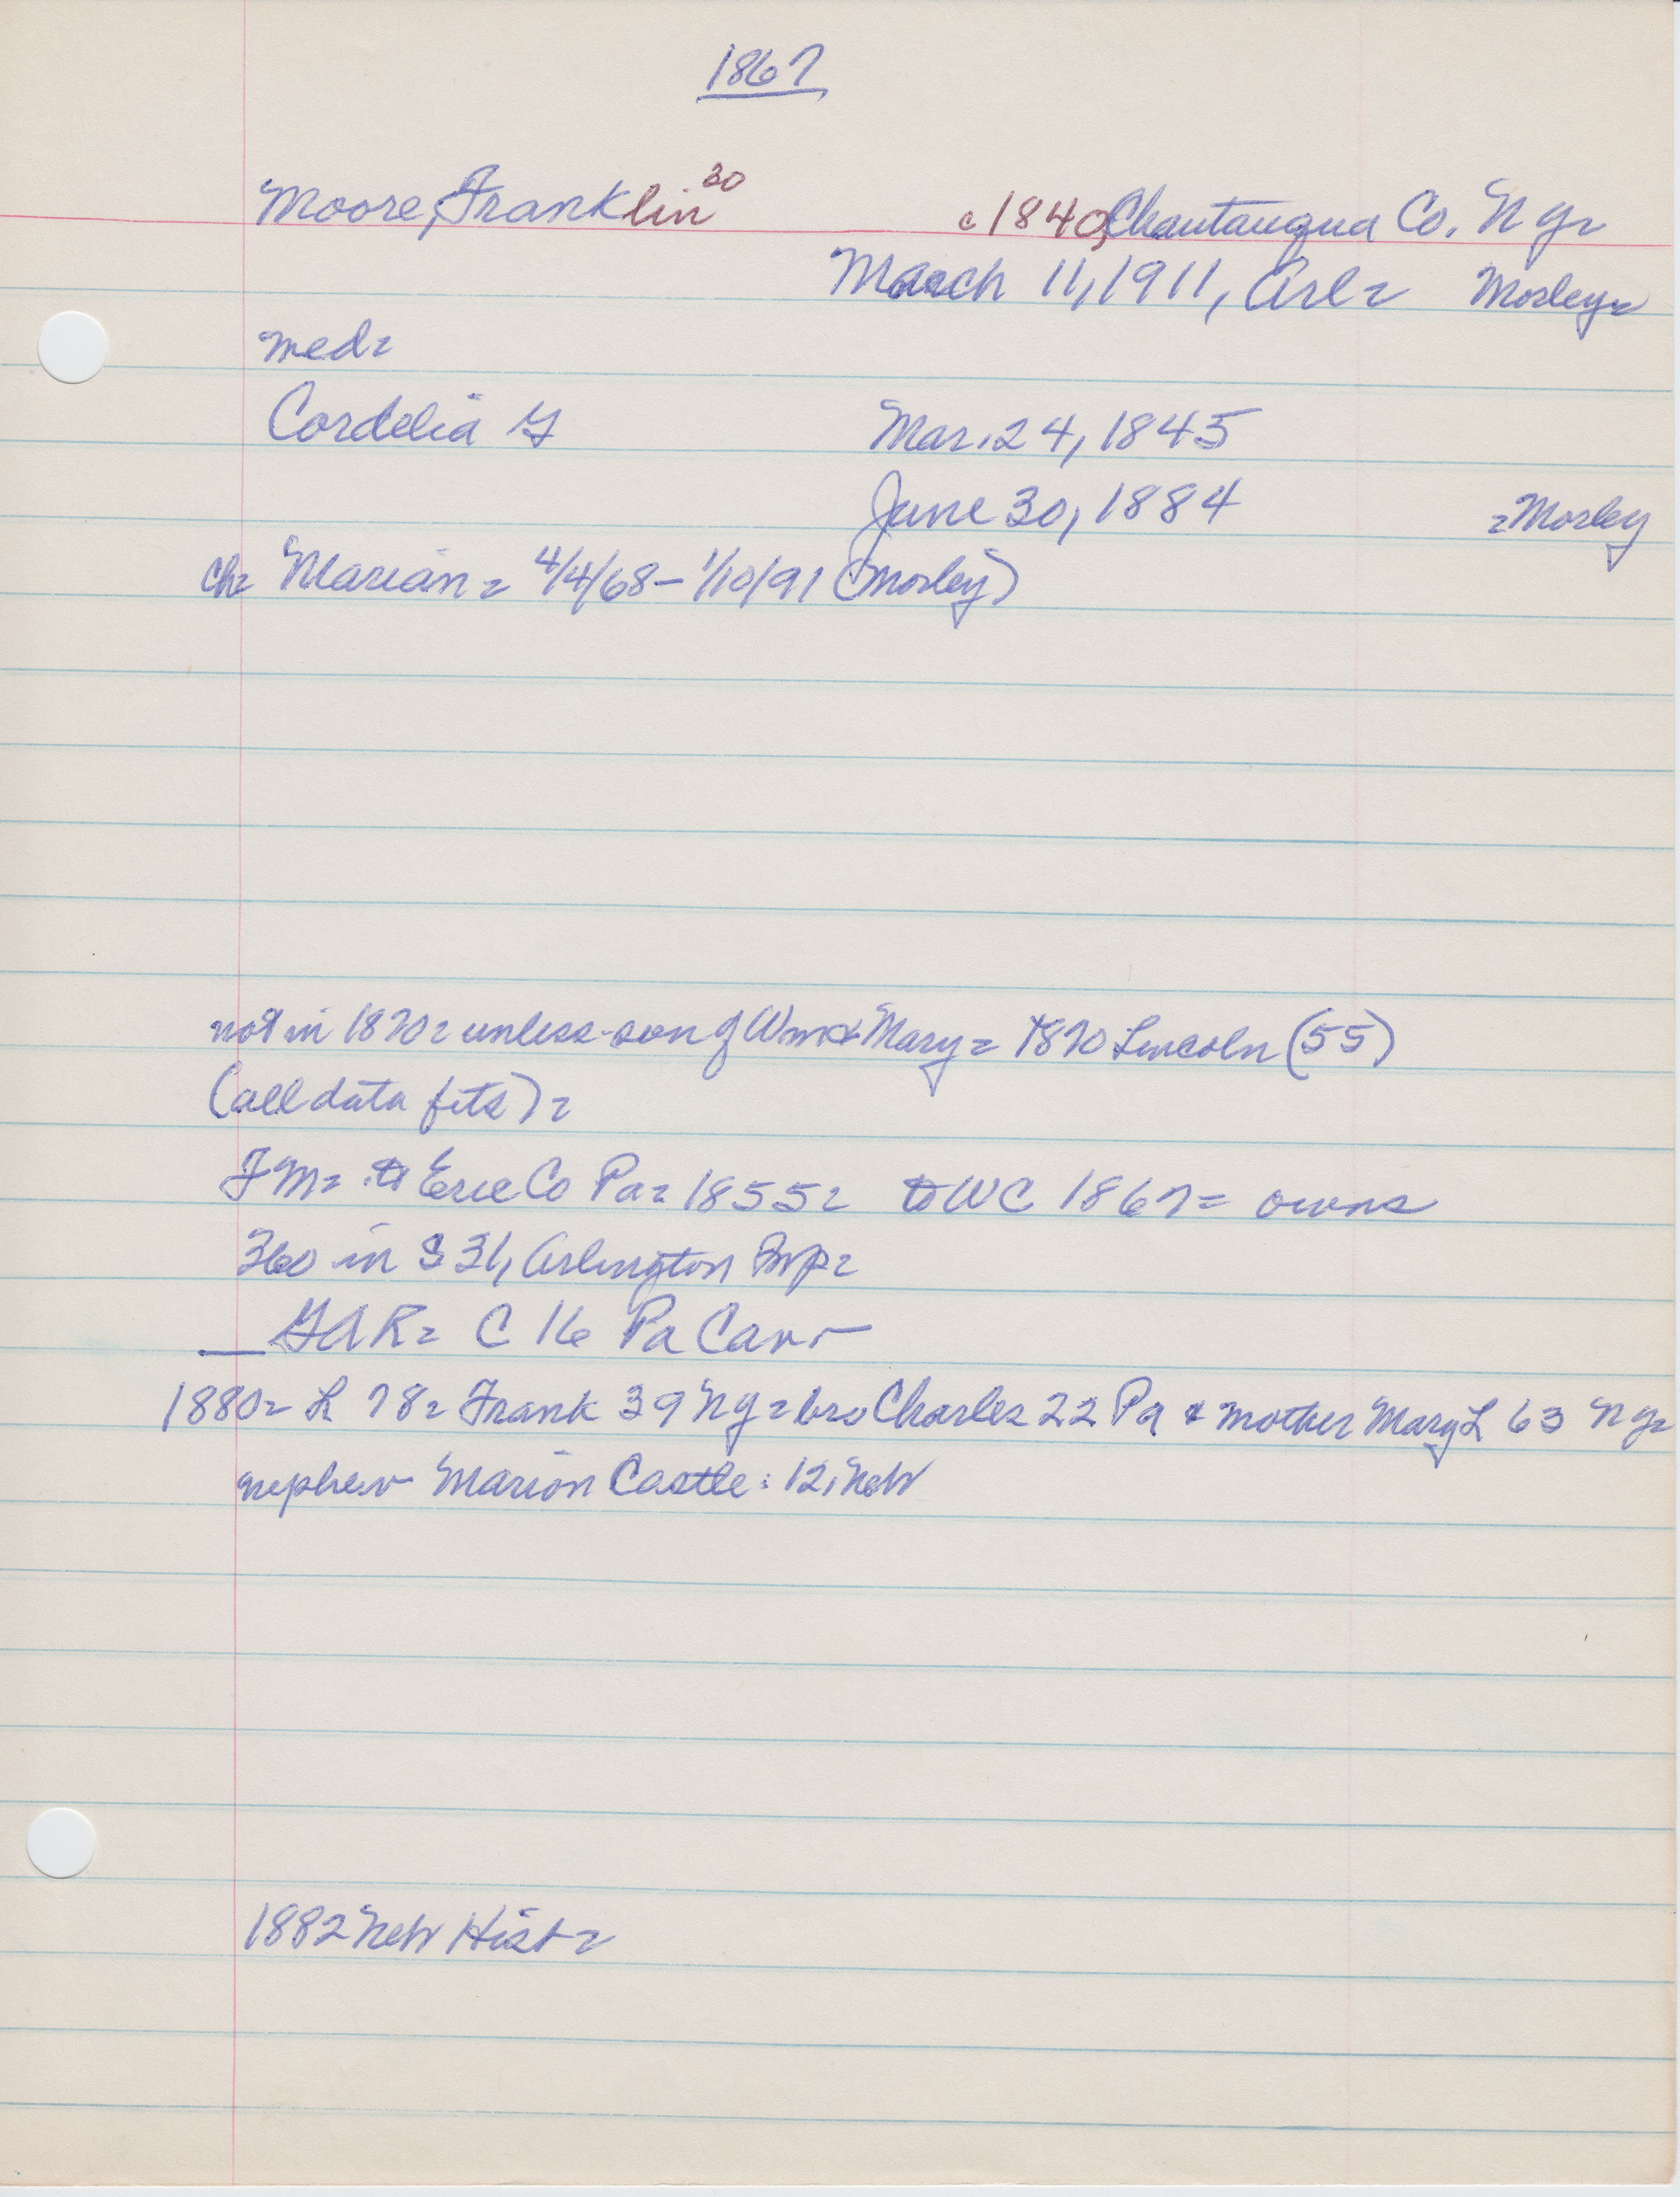 1867
Moore, Franklin 30 c 1840, Chautauqua Co. N Y=
March 11, 1911, Arl= Mosley=
med=
Cordelia G Mar. 24, 1845
June 30, 1884 = Mosley
ch= Marian = 4/4/68 - 1/10/91 (Mosley)
not in 1870 = unless son of Wm & Mary = 1870 Lincoln (55)
(all data fits) =
FM = to Erie Co Pa = 1855 = to WC 1867 = owns
360 in S 31, Arlington Twp =
GAR = C 16 Pa Cav
1880 = L 78 = Frank 39 NY = bro Charles 22 Pa & mother Mary L 63 NY=
nephew Marion Castle : 12, Neb
1882 Neb Hist =